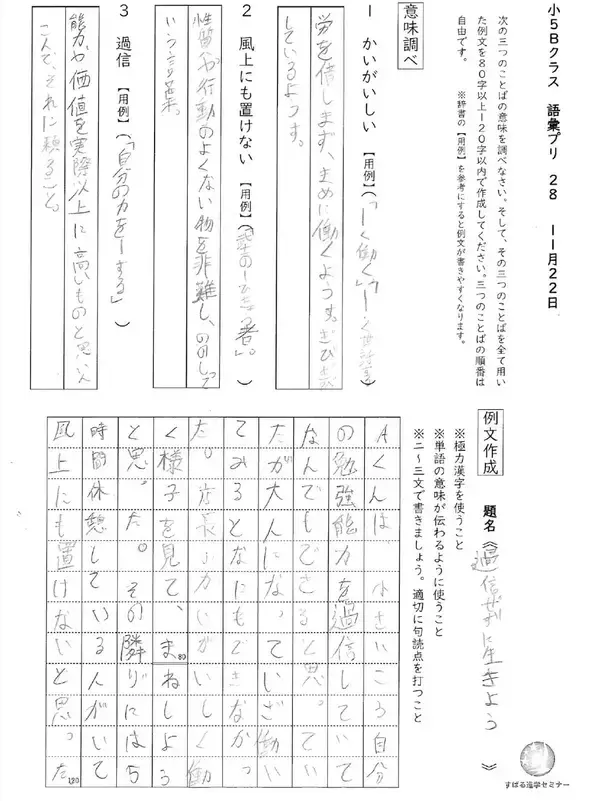 小5Bクラス　語彙プリ　28　11月22日
次の三つのことばの意味を調べなさい。そして、その三つのことばを全て用い
た例文を80字以上120字以内で作成してください。三つのことばの順番は
自由です。　※辞書の【用例】を参考にすると例文が書きやすくなります。
意味調べ
1　かいがいしい　【用例】（「ーく働く」「ーく
労を惜します、まめに働くようす。
しているようす。
2　風上にも置けない　【用例】（
性質や行動のよくない物を非難し、ののしって
いう言葉。
3　過信　【用例】（「自分の力をーする」）
能力や価値を実際以上に高いものと思い
こんで、それに頼ること。
例文作成　題名《過信せずに生きよう》
※極力漢字を使うこと
※単語の意味が伝わるように使うこと
※二〜三文で書きましょう。適切に句読点を打つこと
Aくんは、小さいころ自分
の勉強能力を過信してい
なんでもできると思ってい
たが大人になっていざ働い
てみるとなにもできなかっ
た。店長がかいがいしく働
く様子を見て、まねしよう
と思った。その隣りには5
時間休憩している人がいて
風上にも置けないと思った
80
120
すばる進学セミナー